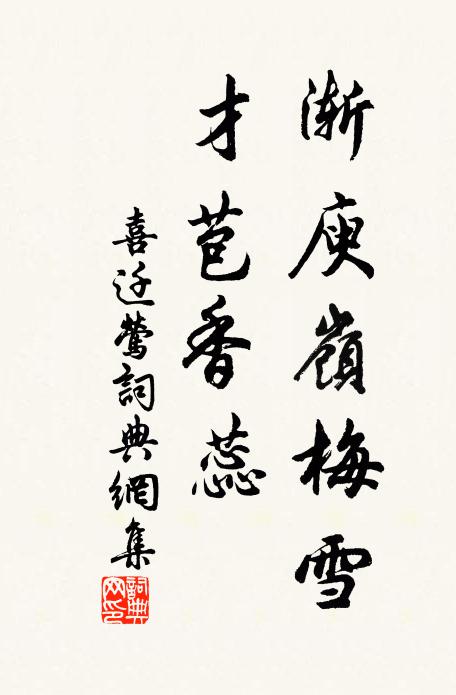 漸庾嶺梅雪
才苞香蕊
喜迁鶯詞典網集
詞典网印